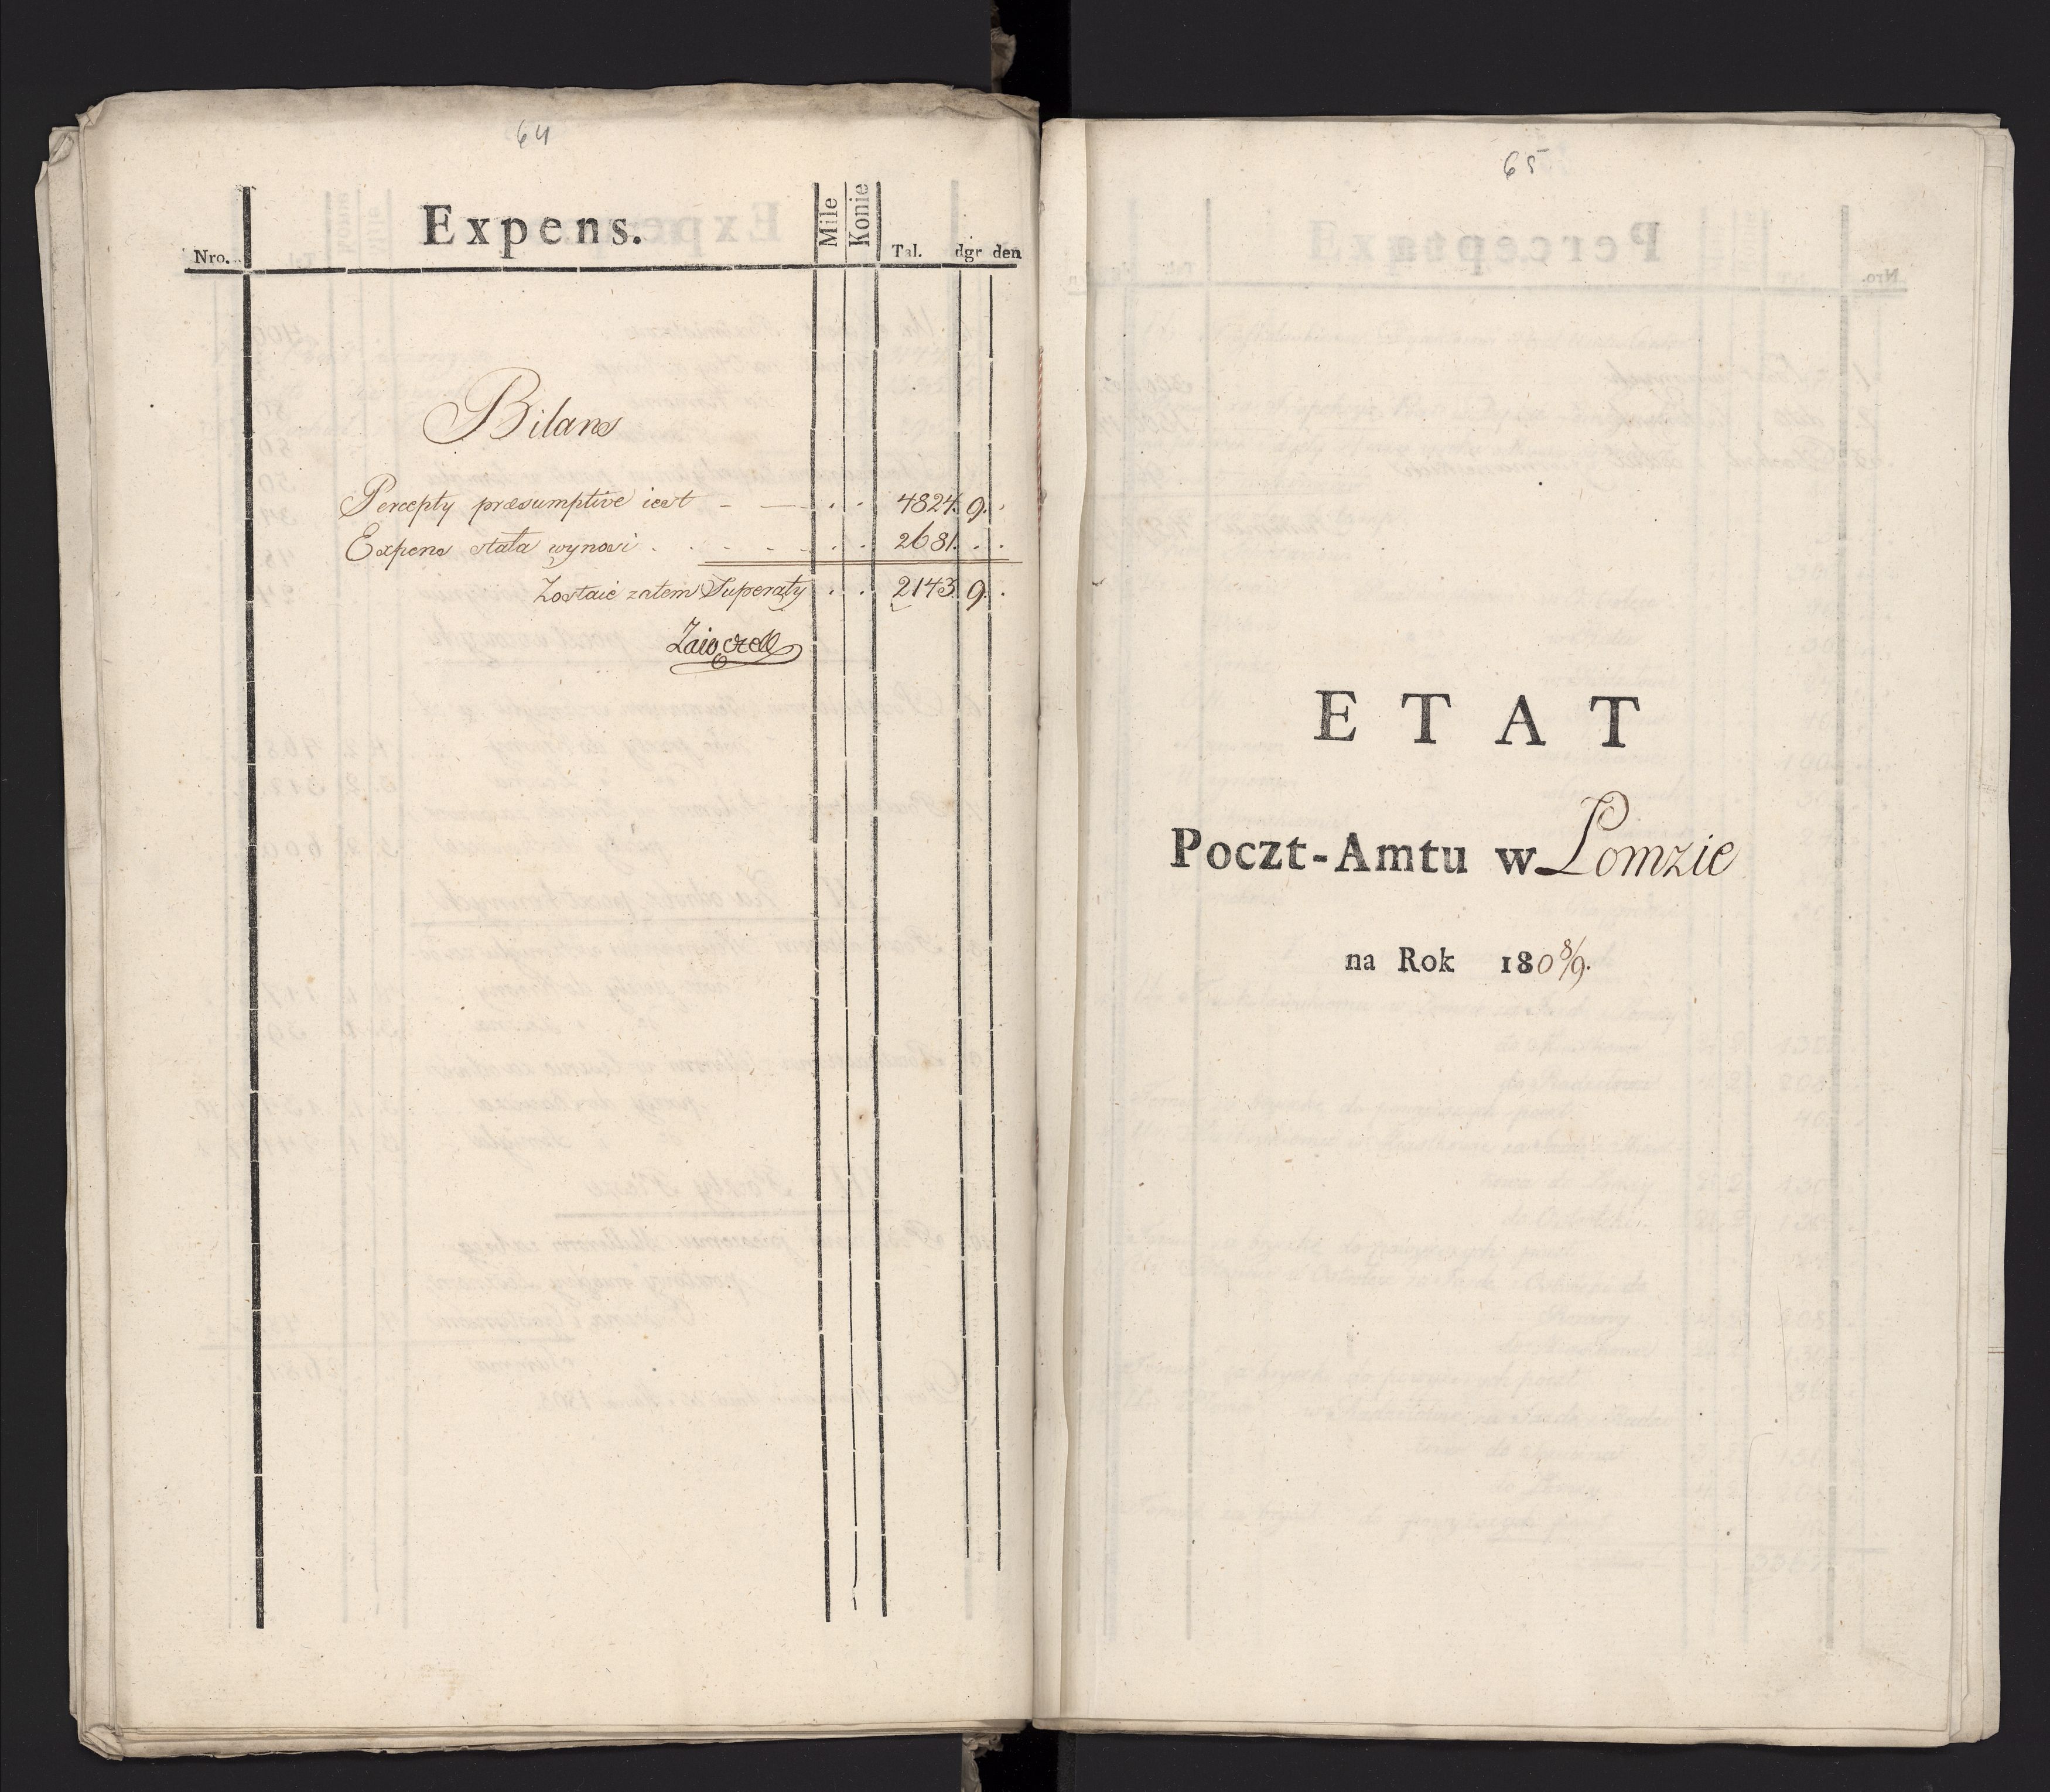 64
Expens.
Nro. Mile Konie Tal. dgr den
Bilans
Percepty præsumptive iest - — . . 4824. 9. .
Expens stała wynosi . . . . . . . 2681. . .
Zostaie zatem Superaty . . 2143. 9. .
65
ETAT
Poczt-Amtu w Lomzie
na Rok 180 8/9.